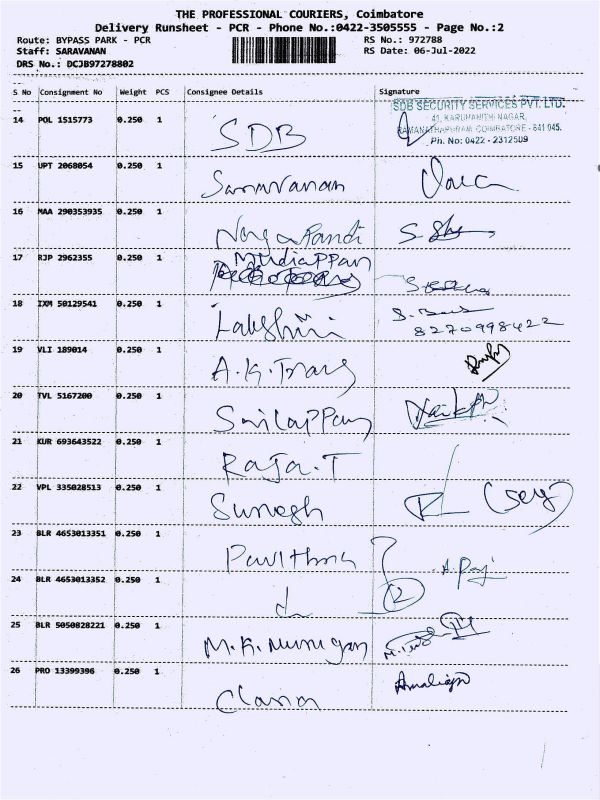 THE PROFESSIONAL COURIERS, Coimbatore
Delivery Runsheet - PCR - Phone No.:0422-3505555 - Page No.:2
Route: BYPASS PARK - PCR RS No.: 972788
Staff: SARAVANAN RS Date: 06-Jul-2022
DRS No.: DCJB97278802
S No Consignment No Weight PCS Consignee Details Signature
SDB SECURITY SERVICES PVT. LTD.
14 POL 1515773 0.250 1 SDB 41, KARUPANITH NAGAR,
RAMANATHAPURAM, COIMBATORE - 641 045.
Ph. No: 0422 - 2312509
15 UPT 2068054 0.250 1 Saravanan
16 MAA 290353935 0.250 1 Naga Pandi
17 RJP 2962355 0.250 1 Mudiappan
18 IXM 50129541 0.250 1 Lakshmi
8270998422
19 VLI 189014 0.250 1 A.K.
20 TVL 5167200 0.250 1
21 KUR 693643522 0.250 1 Raja.T
22 VPL 335028513 0.250 1 Suresh
23 BLR 4653013351 0.250 1 Pavithra A. Raj
24 BLR 4653013352 0.250 1 2
25 BLR 5050828221 0.250 1 M.K. Murugan
26 PRO 13399396 0.250 1